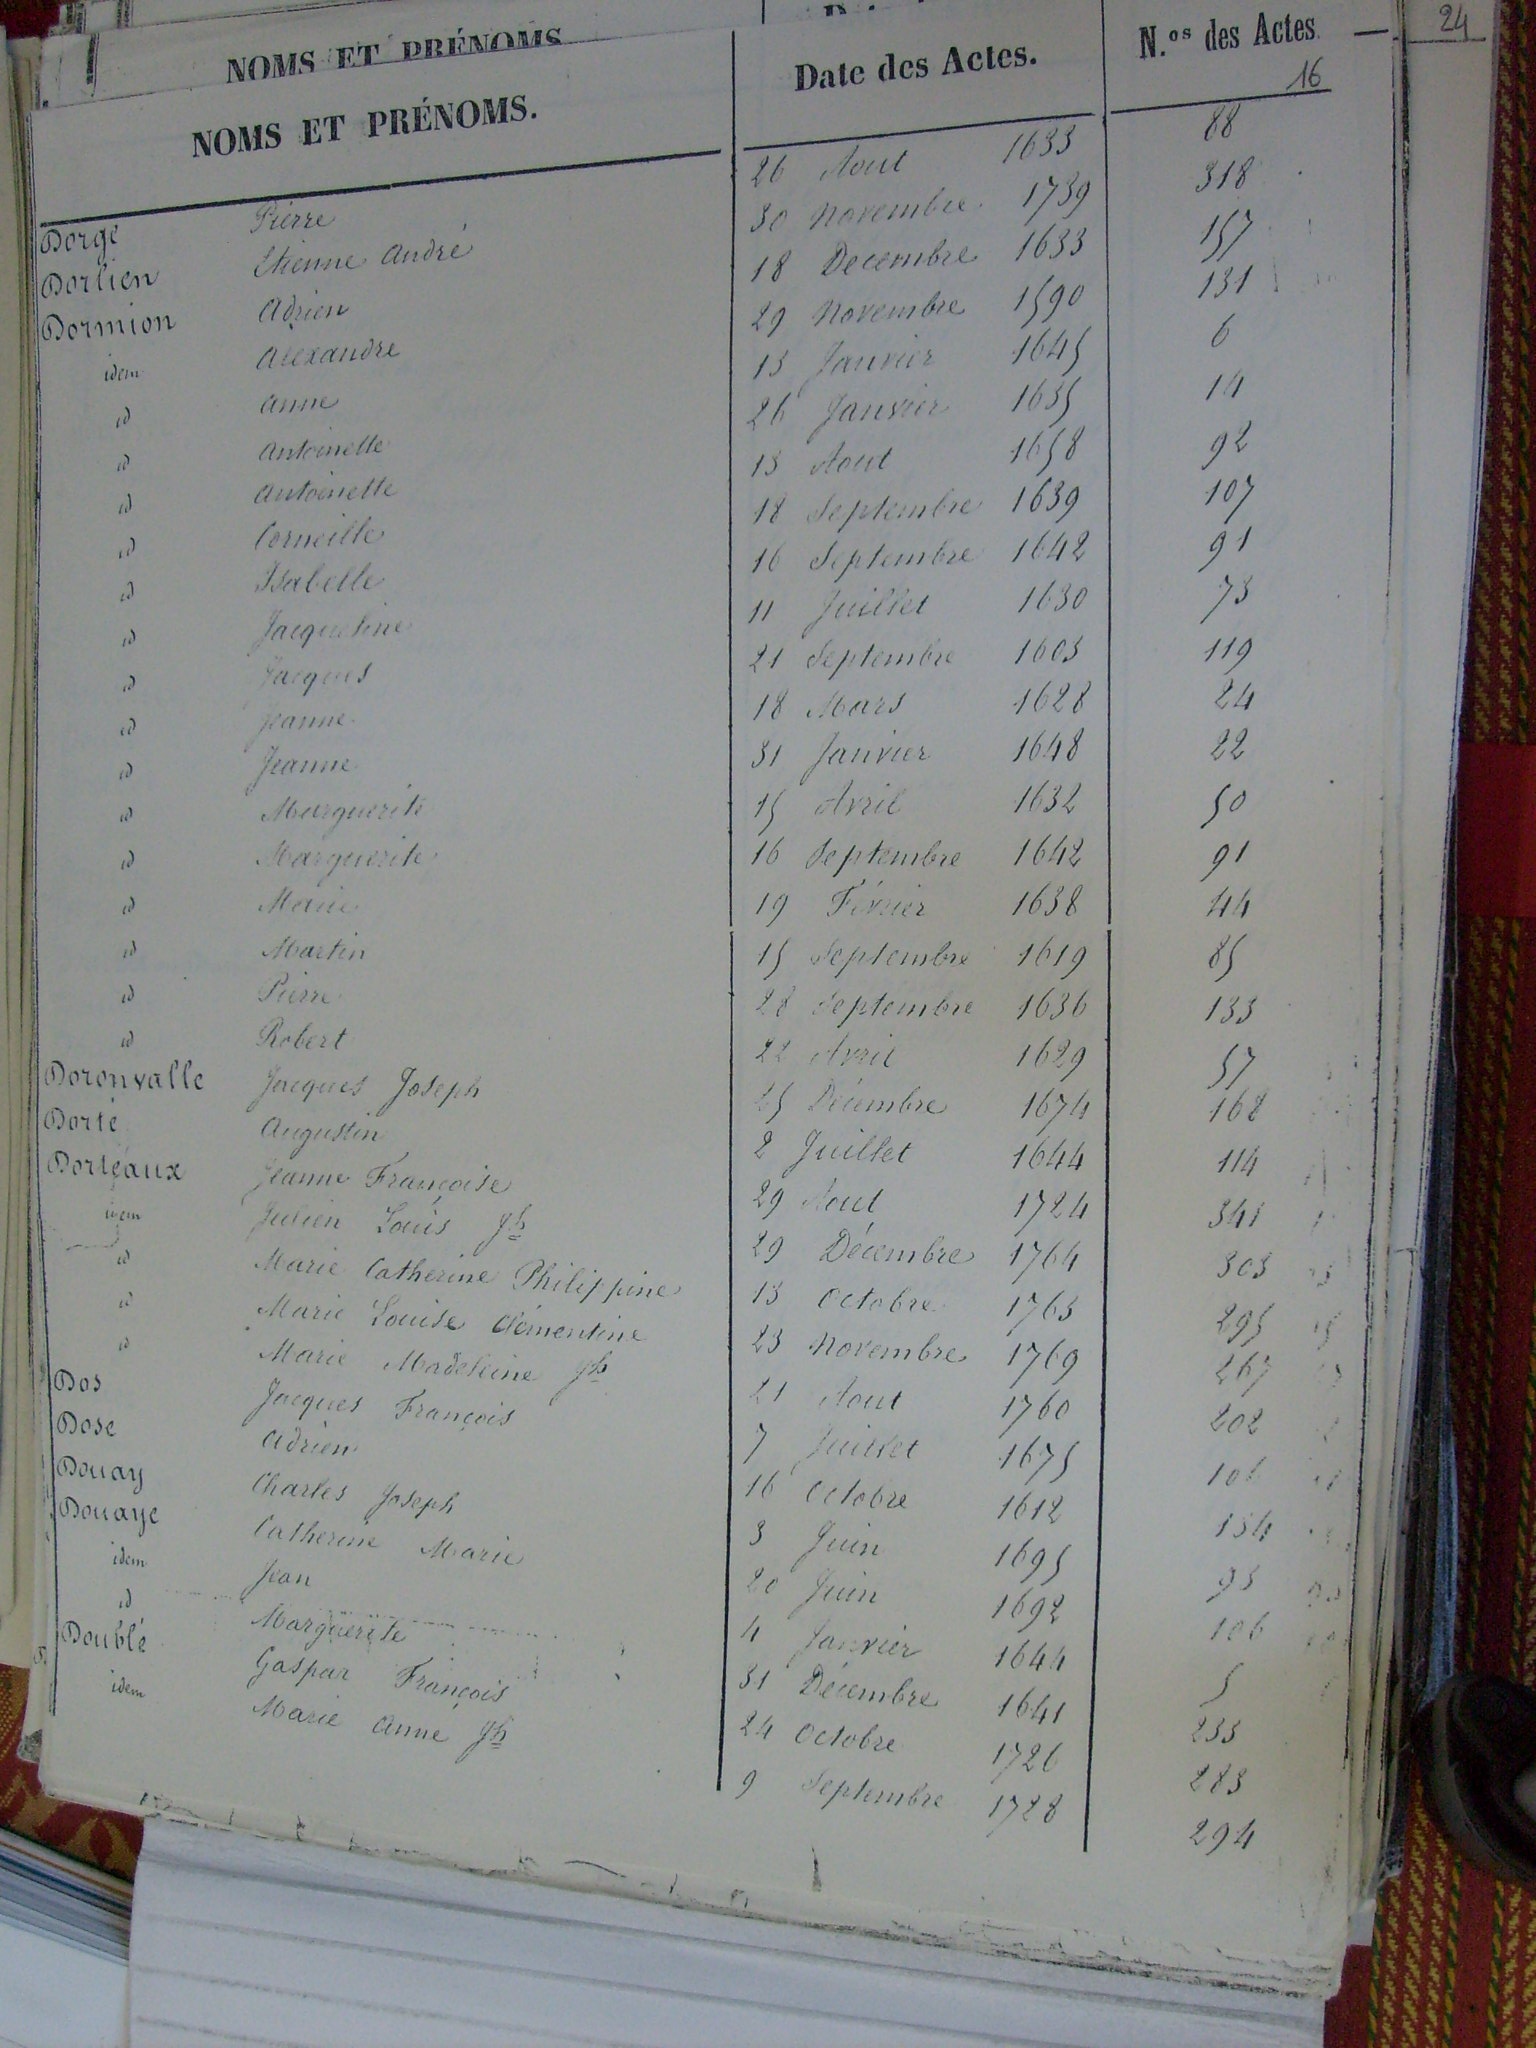 24
NOMS ET PRÉNOMS
NOMS ET PRÉNOMS. Date des Actes. N.os des Actes
16
Dorge Pierre 26 Aout 1633 88
Dorlien Etienne André 30 Novembre 1739 318
Dormion Adrien 18 Decembre 1633 157
idem Alexandre 29 Novembre 1590 131
id Anne 13 Janvier 1645 6
id Antoinette 26 Janvier 1635 14
id Antoinette 13 Aout 1658 92
id Corneille 18 Septembre 1639 107
id Isabelle 16 Septembre 1642 91
id Jacqueline 11 Juillet 1630 73
id Jacques 21 Septembre 1603 119
id Jeanne 18 Mars 1628 24
id Jeanne 31 Janvier 1648 22
id Marguerite 15 Avril 1632 50
id Marguerite 16 Septembre 1642 91
id Marie 19 Février 1638 44
id Martin 15 Septembre 1619 85
id Pierre 28 Septembre 1636 133
id Robert 22 Avril 1629 57
Doronvalle Jacques Joseph 25 Décembre 1674 168
Dorte Augustin 2 Juillet 1644 114
Dorteaux Jeanne Françoise 29 Aout 1724 341
idem Julien Louis Jh 29 Décembre 1764 303
id Marie Catherine Philippine 13 Octobre 1763 295
id Marie Louise Clémentine 23 Novembre 1769 267
id Marie Madeleine Jh 21 Aout 1760 202
Dos Jacques François 7 Juillet 1675 106
Dose Adrien 16 Octobre 1612 134
Douay Charles Joseph 3 Juin 1695 93
Douaye Catherine Marie 20 Juin 1692 106
idem Jean 4 Janvier 1644 5
id Marguerite 31 Décembre 1641 233
Doublé Gaspar François 24 Octobre 1726 283
idem Marie Anne Jh 9 Septembre 1728 294